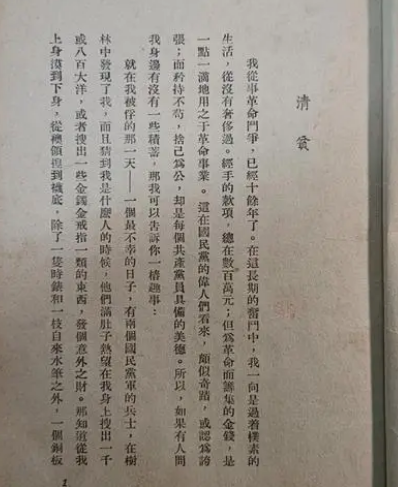 清貧
我從事革命鬥爭,已經十餘年了。在這長期的奮鬥中,我一向是過着樸素的
生活,從沒有奢侈過。經手的款項,總在數百萬元;但爲革命而籌集的金錢,是
一點一滴地用之于革命事業。這在國民黨的偉人們看來,頗似奇蹟,或認爲誇
張;而矜持不苟,捨己爲公,却是每個共產黨員具備的美德。所以,如果有人問
我身邊有沒有一些積蓄,那我可以告訴你一樁趣事:
就在我被俘的那一天——一個最不幸的日子,有兩個國民黨軍的兵士,在樹
林中發現了我,而且猜到我是什麼人的時候,他們滿肚子熱望在我身上搜出一千
或八百大洋,或者搜出一些金鐲金戒指一類的東西,發個意外之財。那知道從我
上身摸到下身,從襖領捏到襪底,除了一隻時錶和一枝自來水筆之外,一個銅板
1